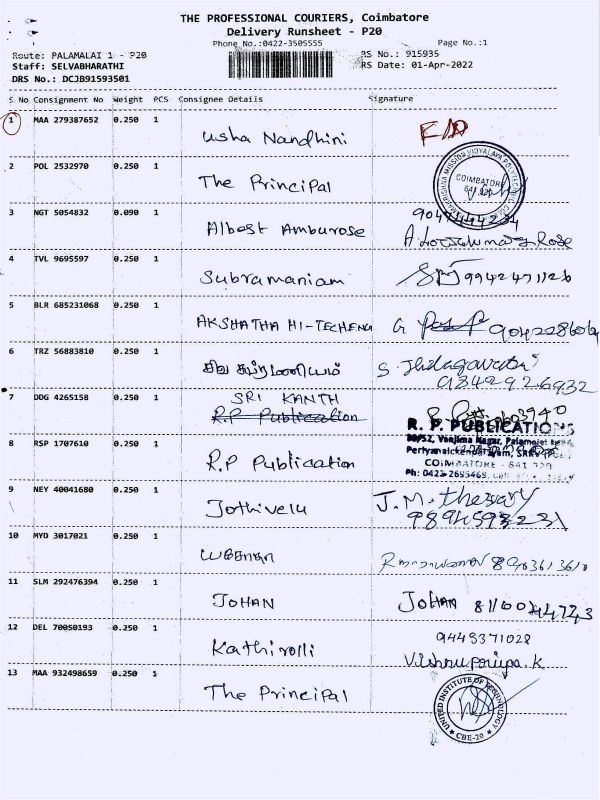 THE PROFESSIONAL COURIERS, Coimbatore
Delivery Runsheet - P20
Phone No.:0422-3505555 Page No.:1
Route: PALAMALAI 1 - P20 RS No.: 915935
Staff: SELVABHARATHI RS Date: 01-Apr-2022
DRS No.: DCJB91593501
S No Consignment No Weight PCS Consignee Details Signature
1 MAA 279387652 0.250 1
Usha Nandhini
2 POL 2532970 0.250 1
The Principal COIMBATORE
3 NGT 5054832 0.090 1
Albest Amburose
4 TVL 9695597 0.250 1
Subramaniam 9942471126
5 BLR 685231068 0.250 1
AKSHATHA HI-TECHENG
6 TRZ 56883810 0.250 1
சிவ சுப்ரமணியம்
9342926932
7 DDG 4265158 0.250 1
SRI KANTH
R.P Publication
R. P. PUBLICATIONS
8 RSP 1707610 0.250 1
COIMBATORE - 641 020
R.P Publication
Ph: 0422-2695469,
9 NEY 40041680 0.250 1
Jothivelu
9894593231
10 MYD 3017021 0.250 1
11 SLM 292476394 0.250 1
JOHAN Johan
12 DEL 70050193 0.250 1
9445371028
Kathirolli Vishnupriya.K
13 MAA 932498659 0.250 1
The Principal UNITED INSTITUTE OF TECHNOLOGY
CBE-20